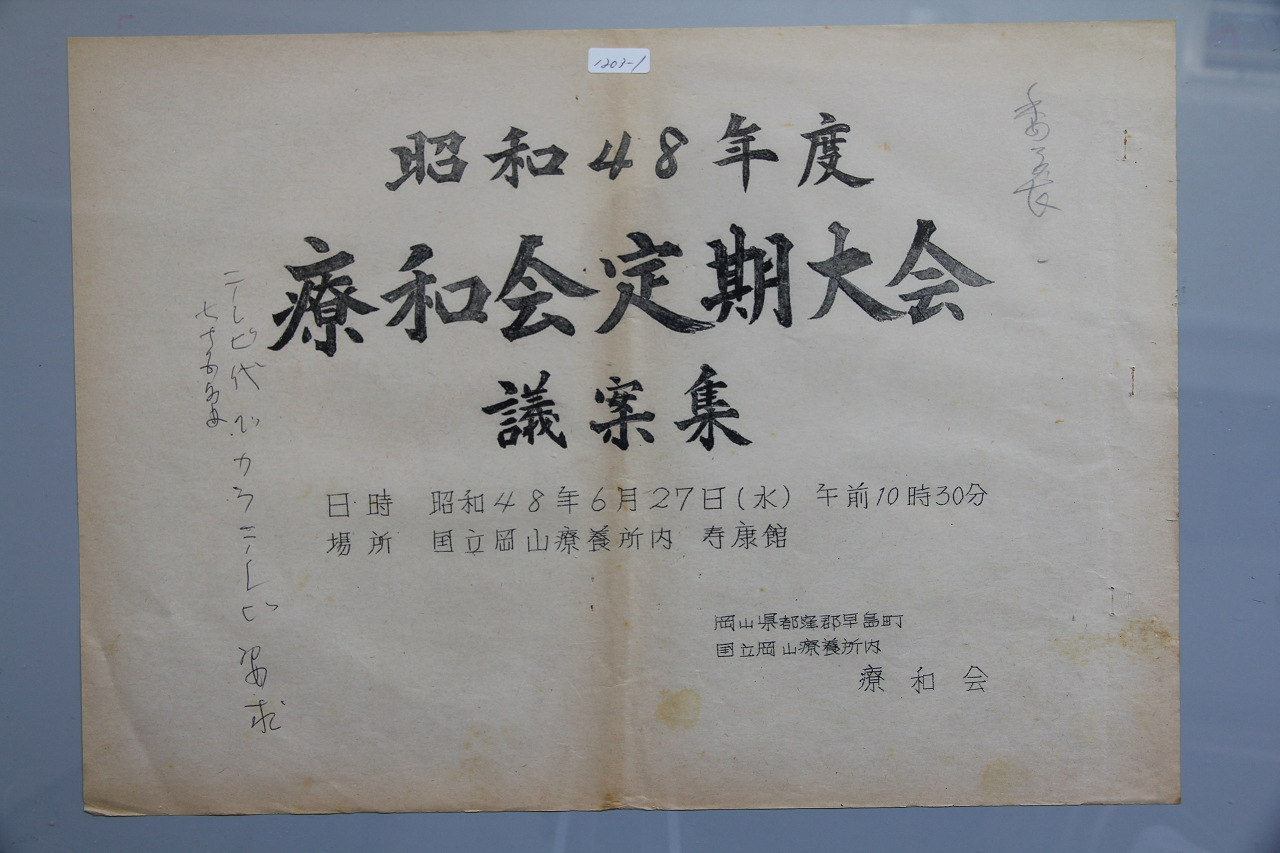 1203-1
昭和48年度
療和会定期大会
議案集
日時 昭和48年6月27日(水) 午前10時30分
場所 国立岡山療養所内 寿康館
岡山県都窪郡早島町
国立岡山療養所内
療和会